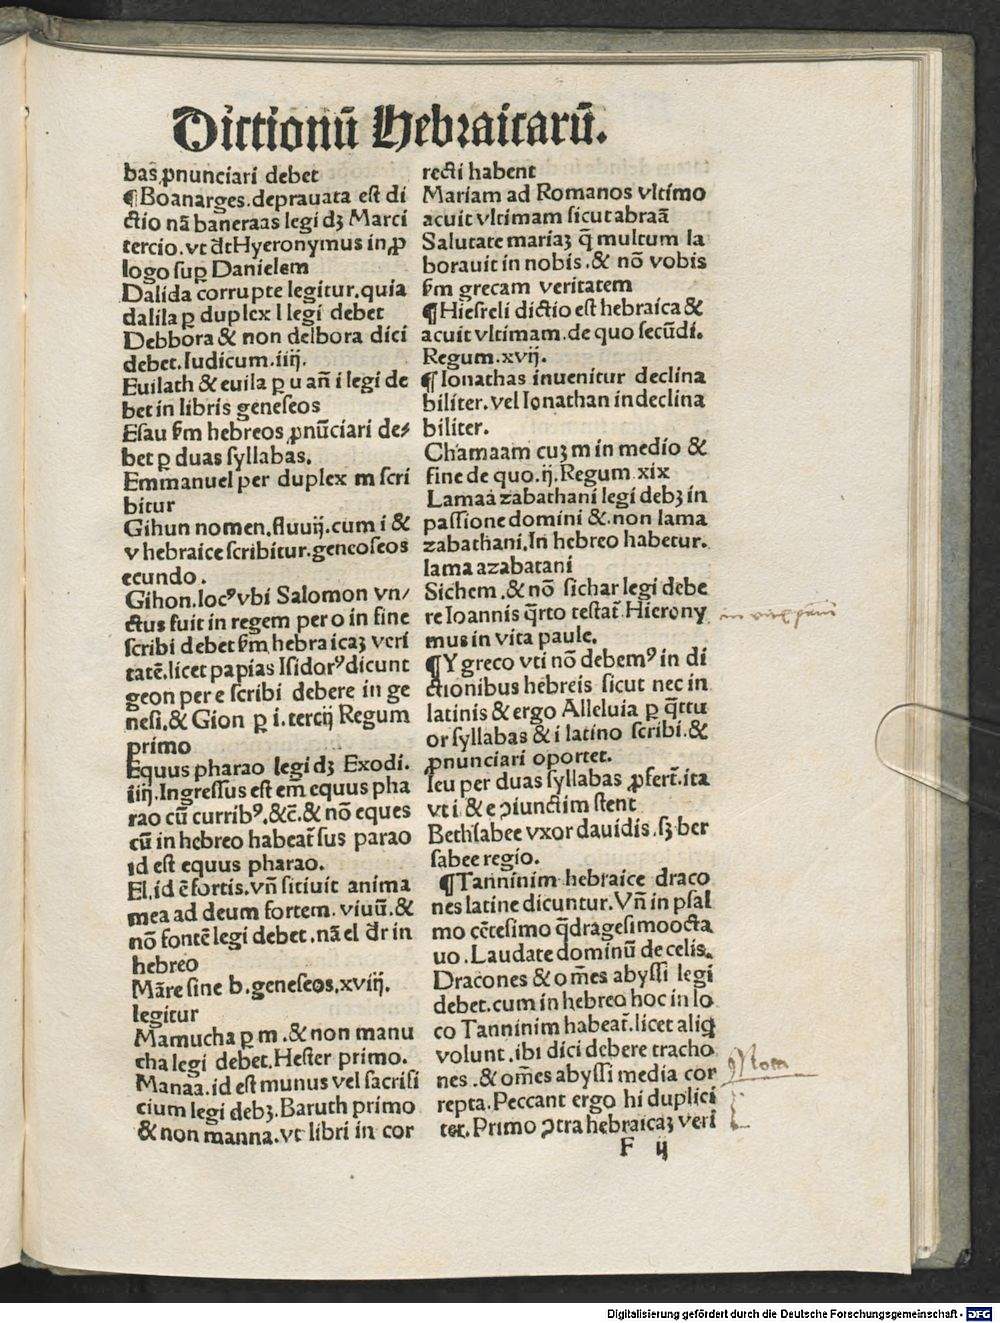 Dictionū Hebraicarū.
bas ꝓnunciari debet
¶Boanarges.deprauata est di
ctio nā baneraas legi dꝫ Marci
tercio.vt dr̄ Hyeronymus in ꝓ
logo suꝑ Danielem
Dalida corrupte legitur.quia
dalila ꝑ duplex l legi debet
Debbora & non delbora dici
debet.Iudicum.iiij.
Euilath & euila ꝑ u an̄ i legi de
bet in libris geneseos
Esau ẜm hebreos ꝓnūciari de⸗
bet ꝑ duas syllabas.
Emmanuel per duplex m scri
bitur
Gihun nomen.fluuij.cum i &
v hebraice scribitur.geneoseos
ecundo.
Gihon.locꝰ vbi Salomon vn/
ctus fuit in regem per o in fine
scribi debet ẜm hebraicaꝫ veri
tatē.licet papias Isidorꝰ dicunt
geon per e scribi debere in ge
nesi.& Gion ꝑ i.tercij Regum
primo
Equus pharao legi dꝫ Exodi.
iiij.Ingressus est em̄ equus pha
rao cū curribꝰ.&c̄.& nō eques
cū in hebreo habeat᷑ sus parao
id est equus pharao.
El.id ē fortis.vn̄ sitiuit anima
mea ad deum fortem.viuū.&
nō fontē legi debet.nā el dr̄ in
hebreo
Māre sine b.geneseos.xviij.
legitur
Mamucha ꝑ m.& non manu
cha legi debet.Hester primo.
Manaa.id est munus vel sacrifi
cium legi debꝫ.Baruth primo
& non manna.vt libri in cor
recti habent
Mariam ad Romanos vltimo
acuit vltimam sicut abraā
Salutate mariaꝫ q̄ multum la
borauit in nobis.& nō vobis
ẜm grecam veritatem
¶Hiesreli dictio est hebraica &
acuit vltimam.de quo secūdi.
Regum.xvij.
¶Ionathas inuenitur declina
biliter.vel Ionathan indeclina
biliter.
Chamaam cuꝫ m in medio &
fine de quo.ij.Regum xix
Lamaa zabathani legi debꝫ in
passione domini & non lama
zabathani.In hebreo habetur.
lama azabatani
Sichem.& nō sichar legi debe
re Ioannis q̄rto testat᷑ Hierony
mus in vita paule.
¶Y greco vti nō debemꝰ in di
ctionibus hebreis sicut nec in
latinis & ergo Alleluia ꝑ q̄ttu
or syllabas & i latino scribi.&
ꝓnunciari oportet.
seu per duas syllabas ꝓfert᷑.ita
vt i & e ↄiunctim stent
Bethsabee vxor dauidis.sꝫ ber
sabee regio.
¶Tanninim hebraice draco
nes latine dicuntur.Vn̄ in psal
mo cētesimo q̄dragesimoocta
uo.Laudate dominū de celis.
Dracones & om̄es abyssi legi
debet.cum in hebreo hoc in lo
co Tanninim habeat᷑.licet aliq̄
volunt.ibi dici debere tracho
nes.& om̄es abyssi media cor
repta.Peccant ergo hi duplici
ter.Primo ↄtra hebraicaꝫ veri
F ij
Nota
Digitalisierung gefördert durch die Deutsche Forschungsgemeinschaft - DFG